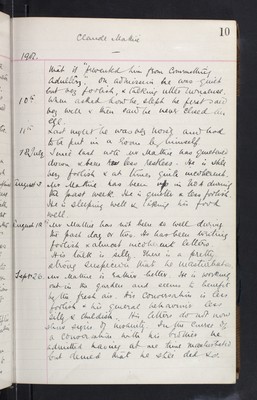 10
Claude Mathie
1901.
that it "prevented him from committing
Adultery". On admission he was quiet
but very foolish, & talking utter nonsense.
10th When asked how he slept he first said
very well & then said he never closed an
eye.
11th Last night he was very noisy and had
to be put in a room by himself
7th July Since last note Mr Mathie has quietened
down & been less restless. He is still
very foolish & at times quite incoherent.
August 3 Mr Mathie has been up in bed during
the past week. He is quieter & less foolish.
He is sleeping well & taking his food
well.
August 18 Mr Mathie has not been so well during
the past day or two. He has been writing
foolish & almost incoherent letters.
His talk is silly. There is a pretty
strong suspicion that he masturbates.
Sept 26. Mr Mathie is rather better. He is working
out in the garden and seems to benefit
by the fresh air. His conversation is less
foolish & his general behaviour less
silly & childish. His letters do not now
show signs of insanity. In the course of
a conversation with his brother he
admitted having at one time masturbated
but denied that he still did so.